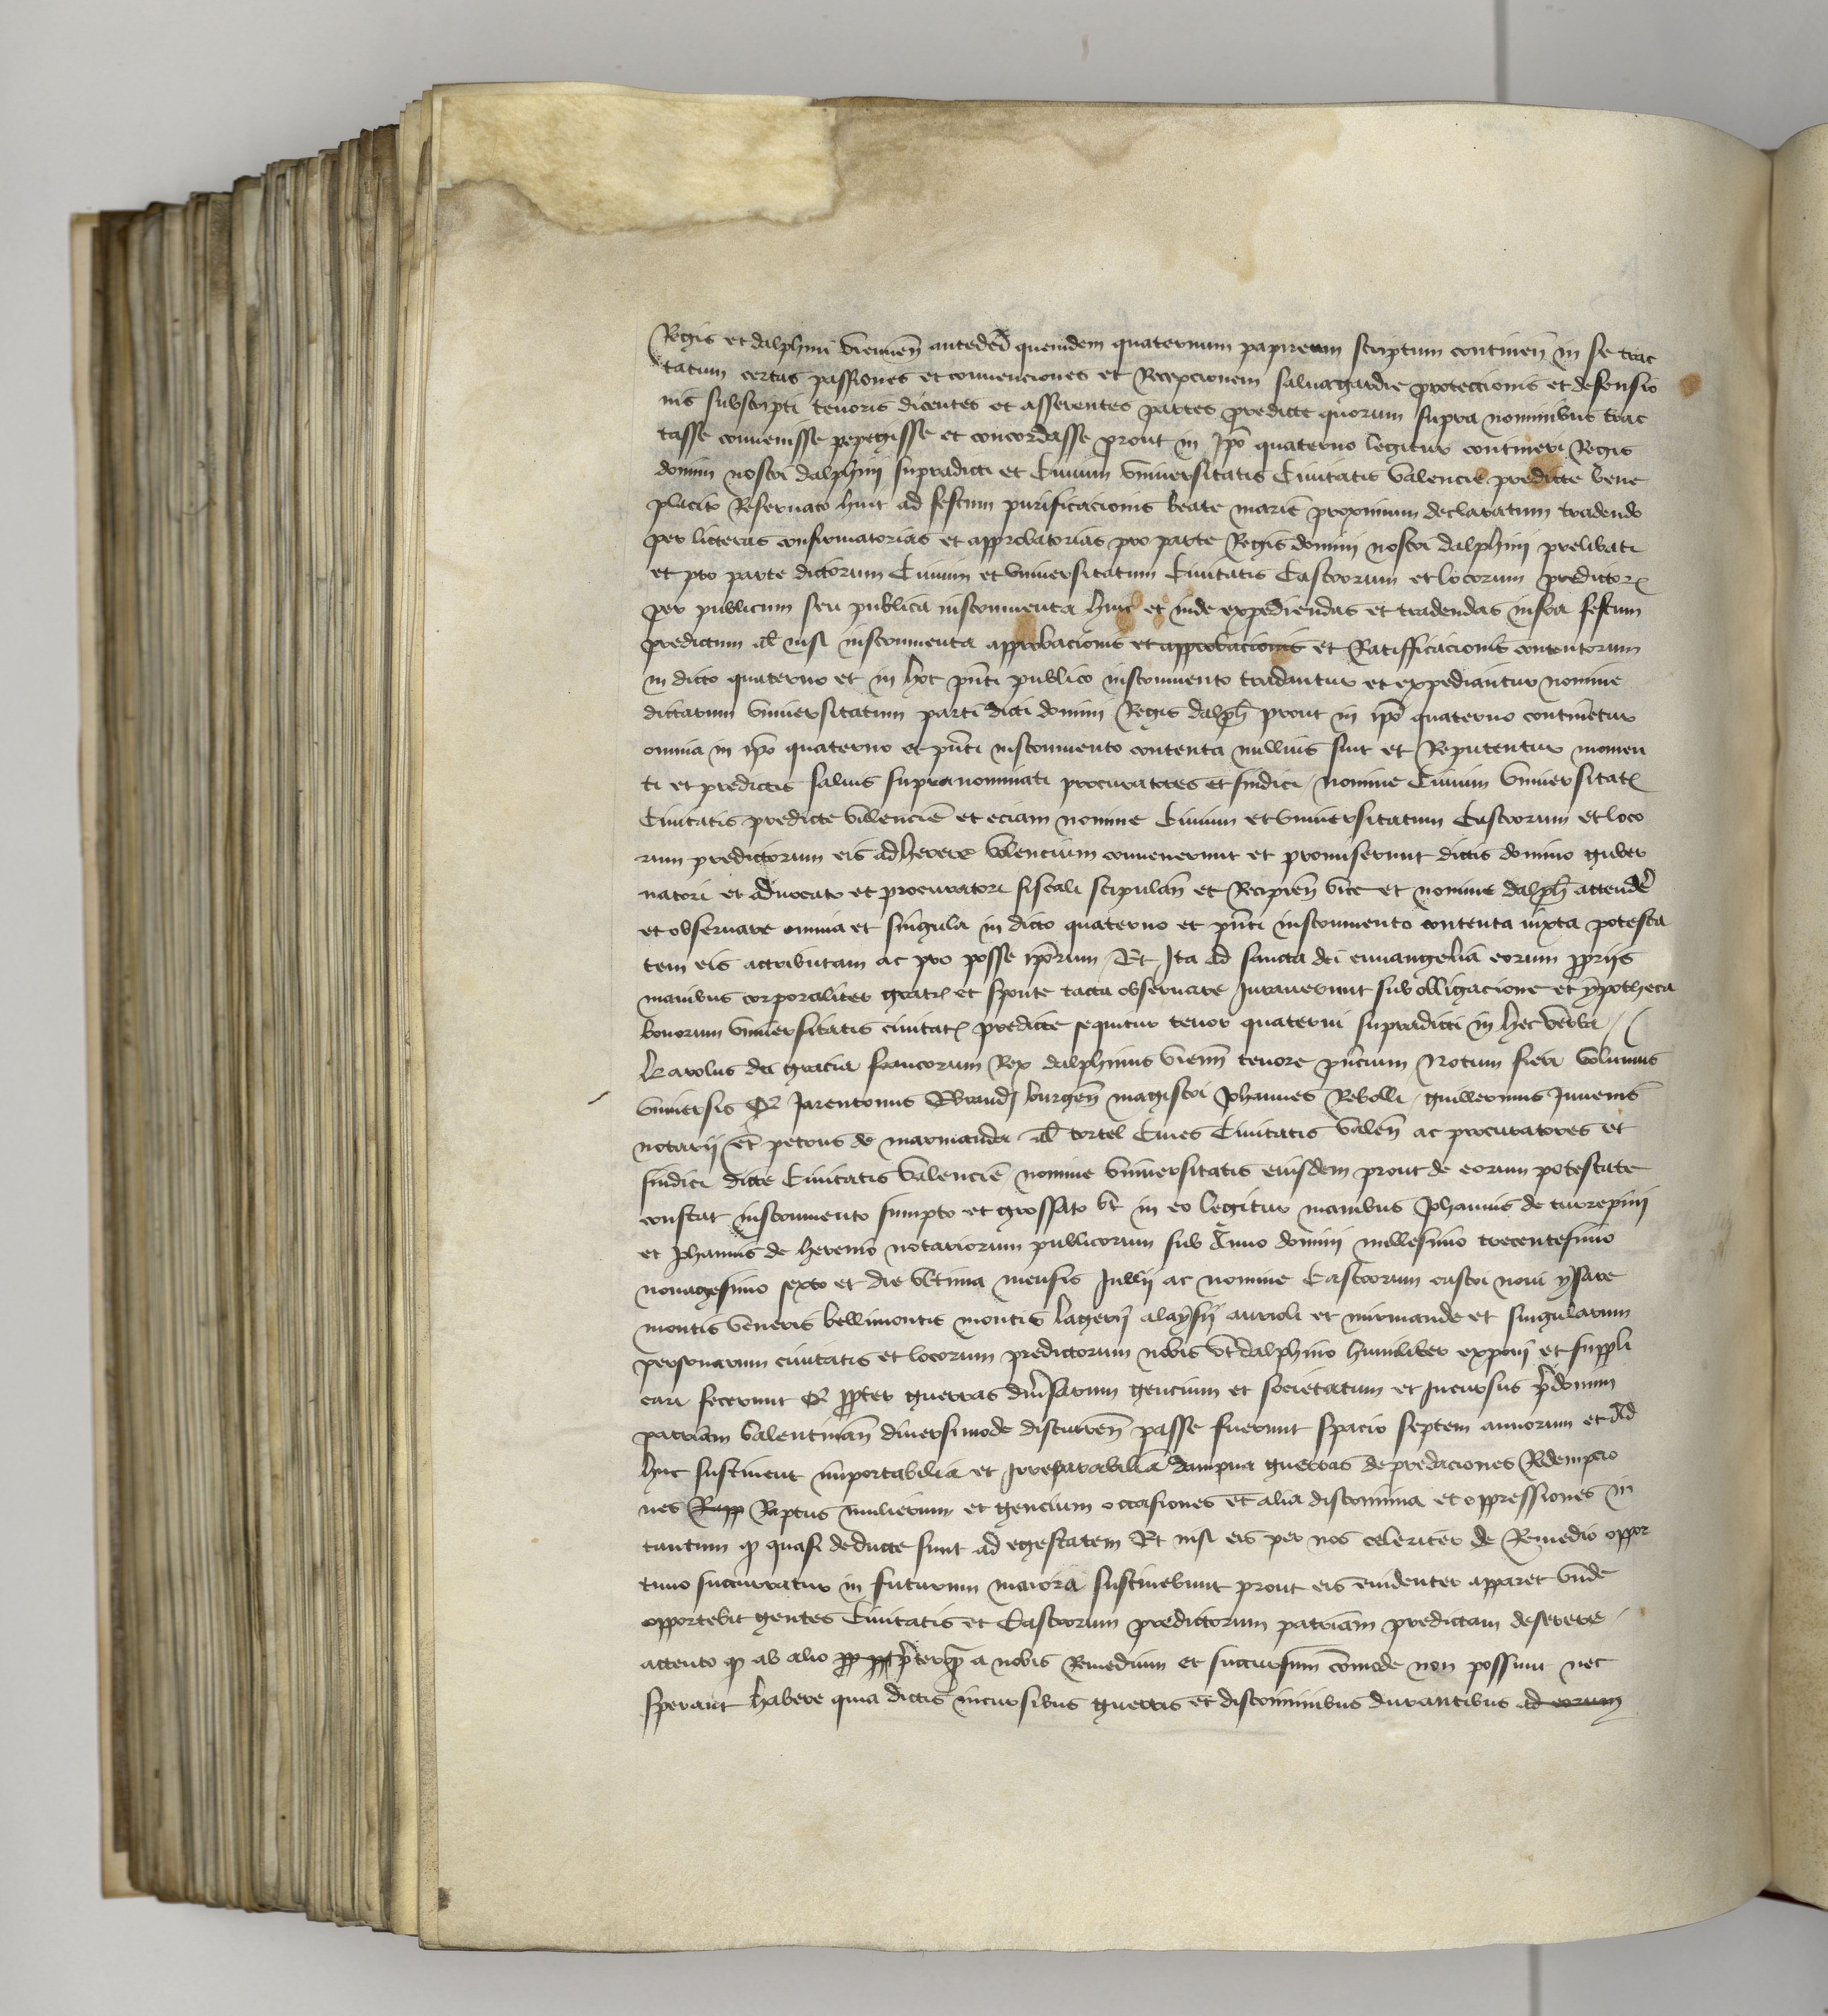 Regis et dalphini viennen̄ antedc̄i quemdem quaternum papireum scriptum continen̄ in se trac
tatum certas passiones et convenciones et Recepcionem salvagardie proteccionis et defensio
nis subscripti tenoris dicentes et asserentes partes predicte quorum supra nominibus trac
tasse convenisse pepegisse et concordasse prout in ip̄o quaterno legitur contineri Regis
domini nostri dalphini supradicti et Civium universitatis Civitatis Valencie predicte bene
placito Reservato hinc ad festum purificacionis beate marie proximum declaratum tradendo
per licteras confirmatorias et approbatorias pro parte Regis domini nostri dalphini prelibati
et pro parte dictorum Civium et universitatum Civitatis Castrorum et locorum predictor
per publicum seu publica instrumenta hinc et inde expediendas et tradendas infra festum
predictum al̄ nisi instrumenta approbacionis et approbacionis et Ratifficacionis contentorum
in dicto quaterno et in hoc pn̄ti publico instrumento tradantur et expediantur nomine
dictarum universitatum parti dicti domini Regis dalph̄ prout in ip̄o quaterno continetur
omnia in ip̄o quaterno et pn̄ti instrumento contenta nullius sint et Reputentur momen
ti et predictis salvis supranominati procuratores et sindici nomine Civium universitat
Civitatis predicte Valencie et eciam nomine Civium et universitatum Castrorum et loco
rum predictorum eis adherere volencium convenerunt et promiserunt dictis domino guber
natori et advocato et procuratori fiscali stipulan̄ et Recipien̄ vice et nomine dalph̄ attendē
et observare omnia et singula in dicto quaterno et pn̄ti instrumento contenta iuxta potesta
tem eis attributam ac pro posse ip̄orum Et Ita ad sancta dei euuangelia eorum pp̄riis
manibus corporaliter gratis et sponte tacta observare Iuraverunt sub obligacione et ypotheca
bonorum universitatis civitat predicte sequitur tenor quaterni supradicti in hec verba
Karolus dei gracia francorum Rex dalphinus vienn̄ tenore pn̄cium Notum fieri volumus
universis Q Jarentonus burgen̄ magistri Johannes Rebolli guillermus Iuvenis
notarii et petrus de marmanda al̄ tortel Cives Civitatis Valen̄ ac procuratores et
sindici dicte Civitatis Valencie nomine universitatis eiusdem prout de eorum potestate
constat instrumento sumpto et grossato ut in eo legitur manibus Johannis de turrepini
et Johannis de herenio notariorum publicorum sub Anno domini millesimo trecentesimo
nonagesimo sexto et die ultima mensis Iullii ac nomine Castrorum castri novi ysare
montis veneris bellimontis montis lagerii alaysii aurioli et mirmande et singularum
personarum civitatis et locorum predictorum nobis ut dalphino humiliter exponi et suppli
cari fecerunt Q pp̄ter guerras div̄sarum gencium et societatum et Incursus p̄donum
patriam Valentinian̄ diversimode discurren̄ passe fuerunt spacio septem annorum et ad
huc sustinent importabilia et Irreparabilia dampna guerras depredaciones Redempcio
nes Rapp Raptus mulierum et gencium occasiones et alia discrimina et oppressiones in
tantum q quasi deducte sunt ad egestatem Et nisi eis per nos celeriter de Remedio oppor
tuno succurratur in futurum maiora sustinebunt prout eis evidenter apparet unde
opportebit gentes Civitatis et Castrorum predictorum patriam predictam deserere
attento q ab alio p̄terq a nobis Remedium et succursum com̄ode non possunt nec
sperant habere quia dictis incursibus guerris et discriminibus durantibus ad eorum